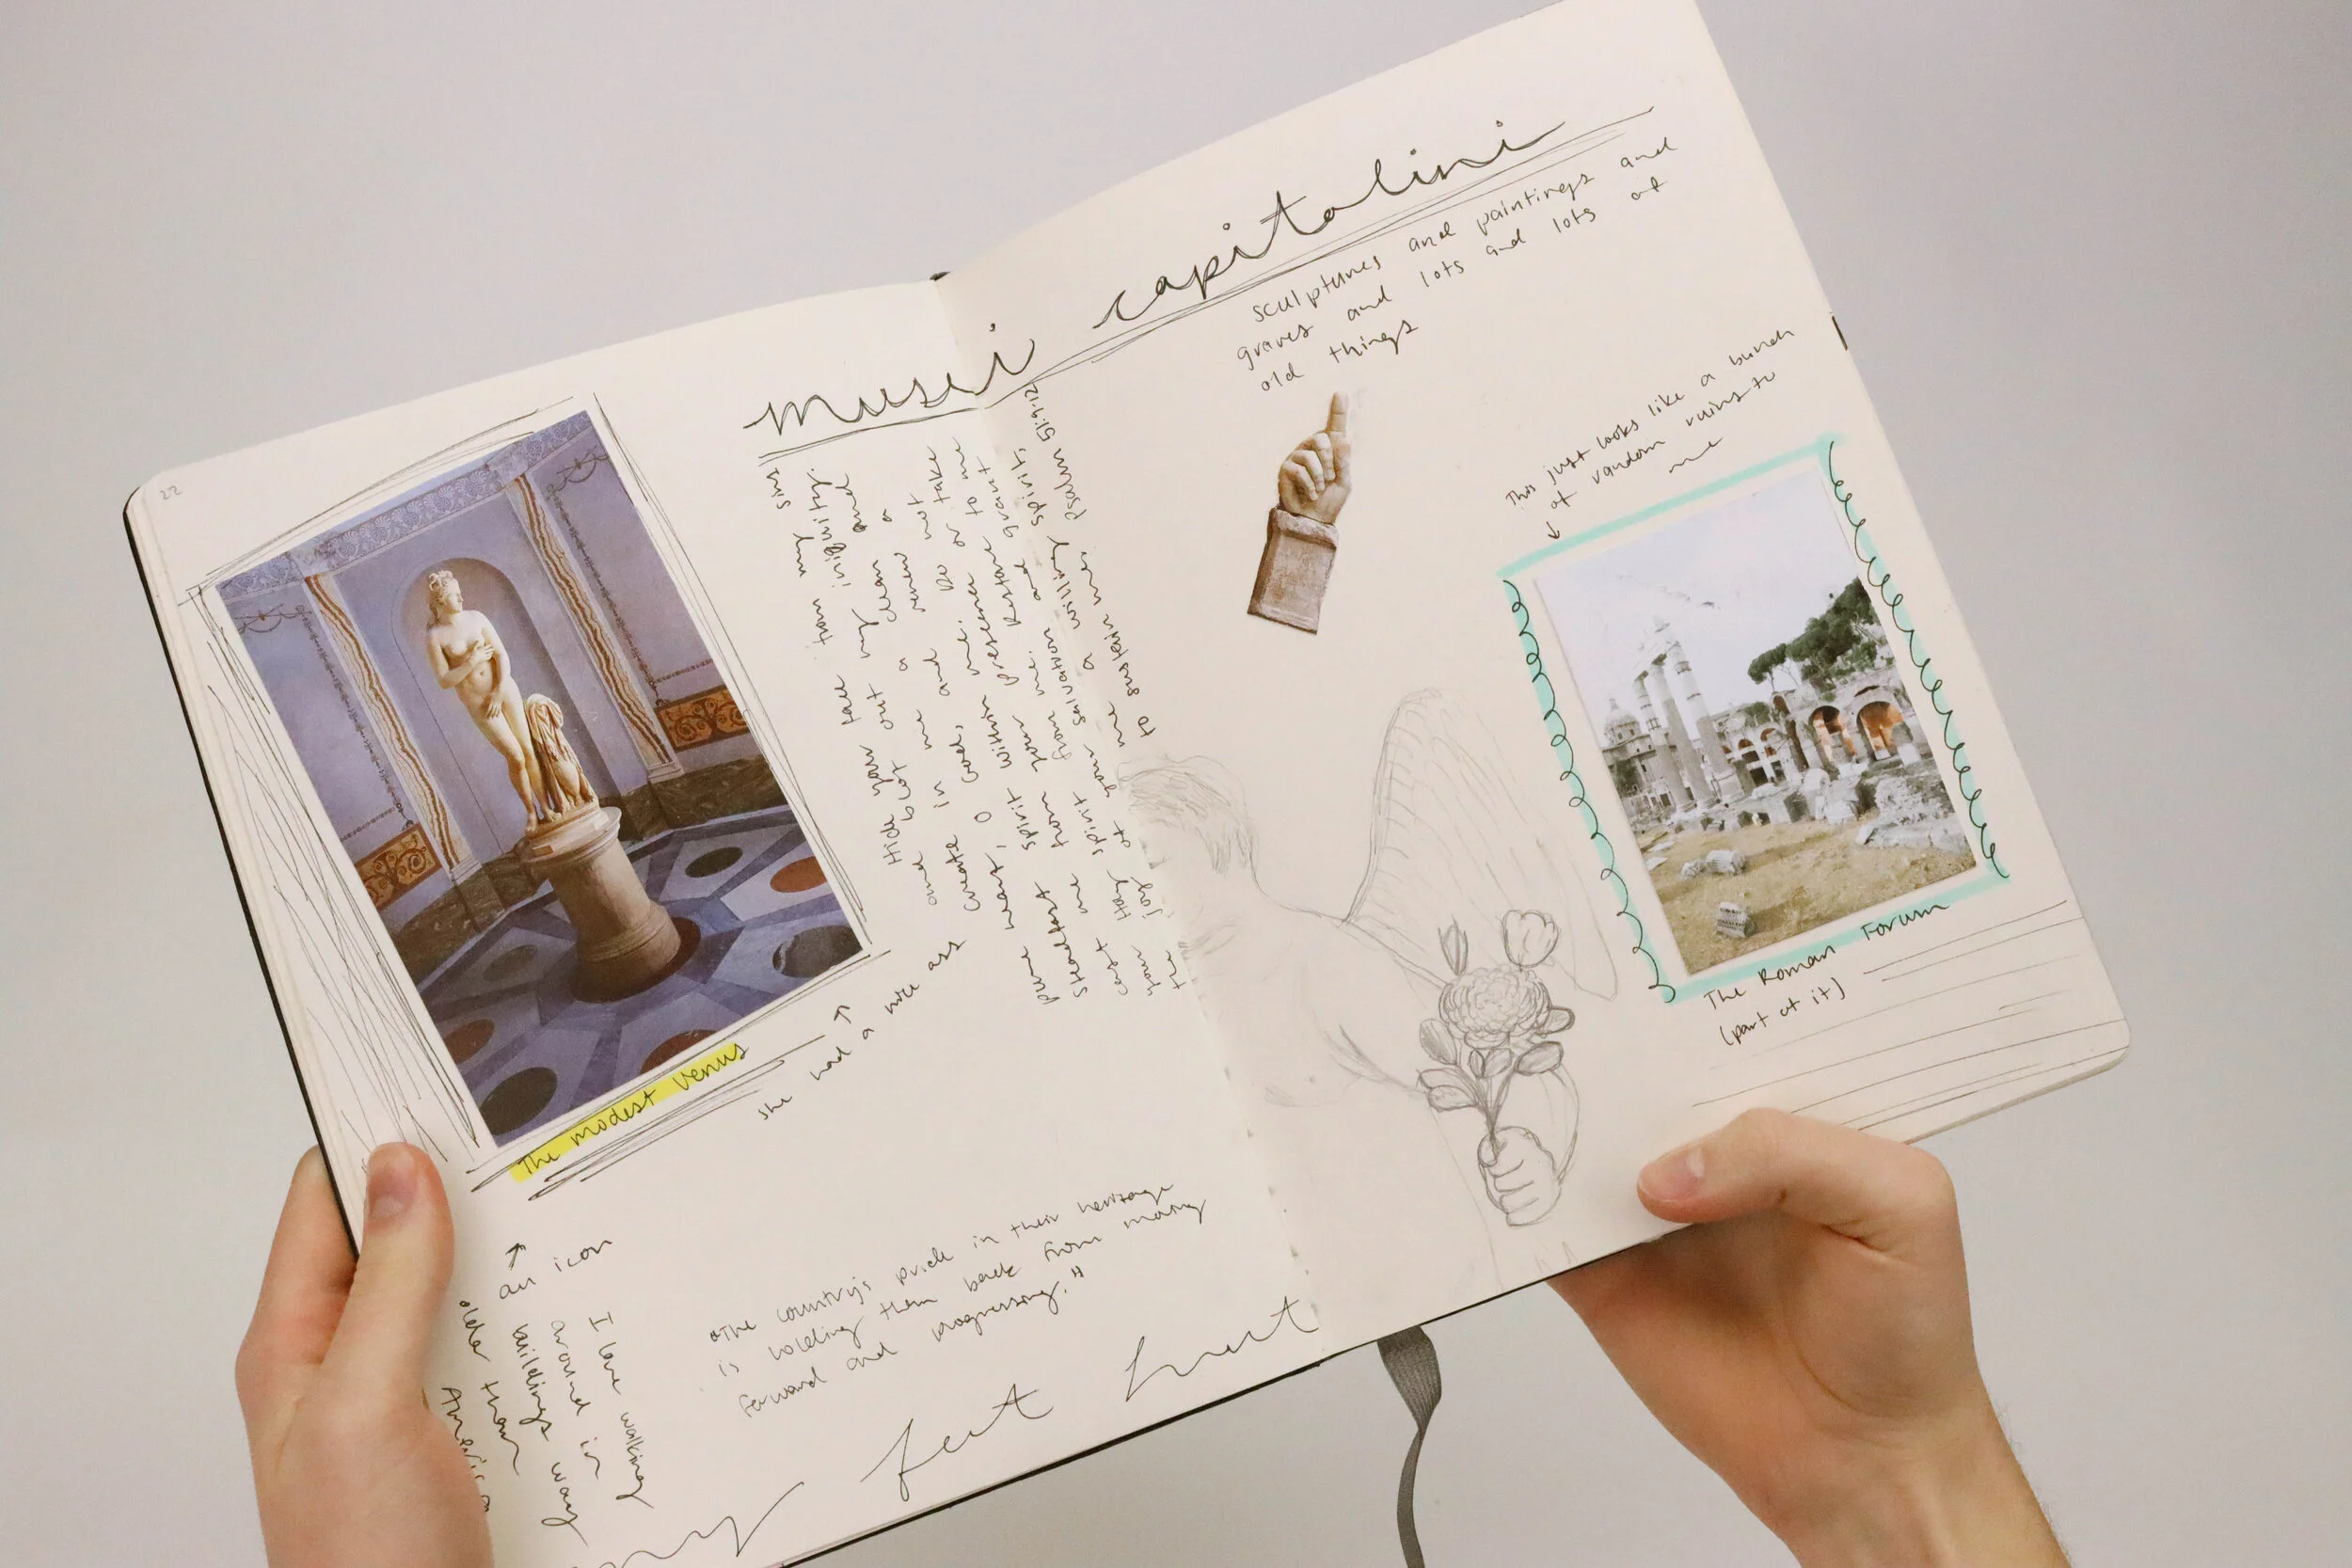 22
musei capitolini
sculptures and paintings and
graves and lots and lots of
old things
Hide your face from my sins
and blot out all my iniquity.
Create in me a clean
pure heart, O God, and renew a
steadfast spirit within me. Do not
cast me from your presence or take
your Holy spirit from me. Restore to me
the joy of your salvation and grant
me a willing spirit,
to sustain me. Psalm 51:9-12
This just looks like a bunch
of random ruins to
me
The Roman Forum
(part of it)
The modest Venus
she had a nice ass
an icon
I love walking
around in
buildings way
older than
America
"The country's pride in their heritage
is holding them back from moving
forward and progressing."
my feet hurt